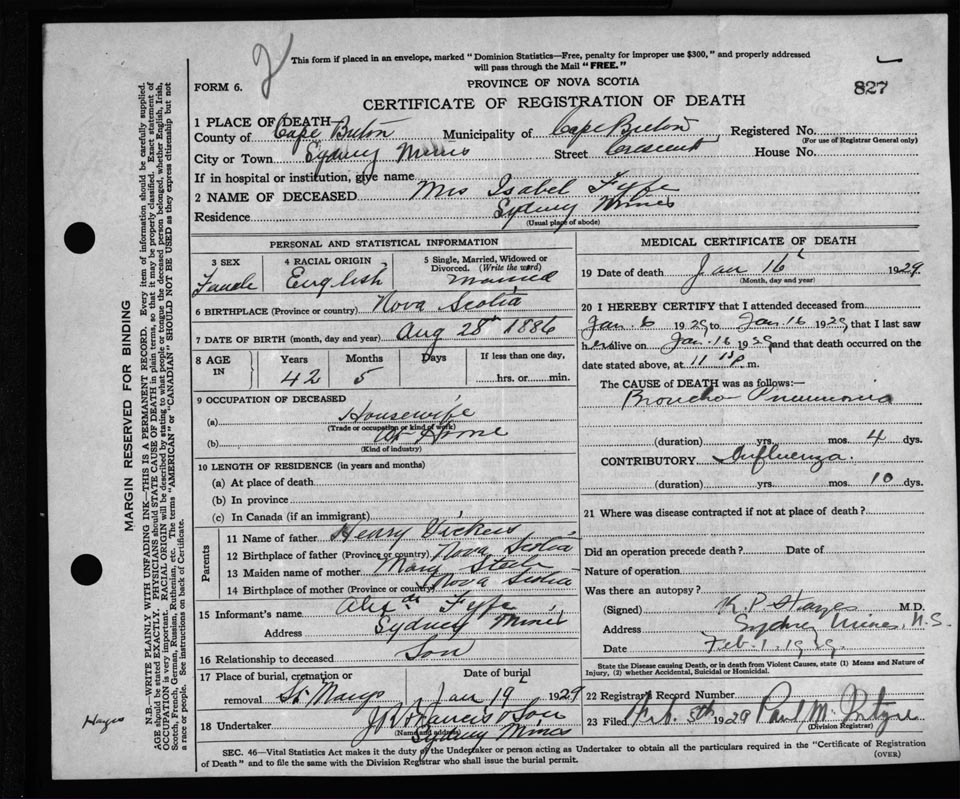 2
This form if placed in an envelope, marked "Dominion Statistics—Free, penalty for improper use $300," and properly addressed
will pass through the Mail "FREE."
FORM 6.
PROVINCE OF NOVA SCOTIA
827
CERTIFICATE OF REGISTRATION OF DEATH
1 PLACE OF DEATH—
County of Cape Breton Municipality of Cape Breton Registered No.
(For use of Registrar General only)
City or Town Sydney Mines Street Crescent House No.
If in hospital or institution, give name
2 NAME OF DECEASED Mrs Isabel Fyfe
Residence Sydney Mines
(Usual place of abode)
PERSONAL AND STATISTICAL INFORMATION
3 SEX Female
4 RACIAL ORIGIN English
5 Single, Married, Widowed or
Divorced. (Write the word) Married
6 BIRTHPLACE (Province or country) Nova Scotia
7 DATE OF BIRTH (month, day and year) Aug 28th 1886
8 AGE IN Years Months Days If less than one day,
42 5 hrs. or min.
9 OCCUPATION OF DECEASED
(a) Housewife
(Trade or occupation or kind of work)
(b) At Home
(Kind of industry)
10 LENGTH OF RESIDENCE (in years and months)
(a) At place of death
(b) In province
(c) In Canada (if an immigrant)
Parents
11 Name of father Henry Vickers
12 Birthplace of father (Province or country) Nova Scotia
13 Maiden name of mother Mary
14 Birthplace of mother (Province or country) Nova Scotia
15 Informant's name Alex Fyfe
Address Sydney Mines
16 Relationship to deceased Son
17 Place of burial, cremation or Date of burial
removal St. Marys Jan 19 1929
18 Undertaker J R Francis & Son
(Name and address)
Sydney Mines
MEDICAL CERTIFICATE OF DEATH
19 Date of death Jan 16 1929
(Month, day and year)
20 I HEREBY CERTIFY that I attended deceased from
Jan. 6 1929 to Jan. 16 1929 that I last saw
her alive on Jan. 16 1929 and that death occurred on the
date stated above, at 11 m.
The CAUSE of DEATH was as follows:—
Broncho Pneumonia
(duration) yrs. mos. 4 dys.
CONTRIBUTORY Influenza.
(duration) yrs. mos. 10 dys.
21 Where was disease contracted if not at place of death?
Did an operation precede death? Date of
Nature of operation
Was there an autopsy?
(Signed) K. P. Hayes M.D.
Address Sydney Mines, N.S.
Date Feb. 1, 1929.
State the Disease causing Death, or in death from Violent Causes, state (1) Means and Nature of
Injury, (2) whether Accidental, Suicidal or Homicidal.
22 Registrar's Record Number
23 Filed Feb. 5th 1929
(Division Registrar)
SEC. 46—Vital Statistics Act makes it the duty of the Undertaker or person acting as Undertaker to obtain all the particulars required in the "Certificate of Registration
of Death" and to file the same with the Division Registrar who shall issue the burial permit.
(OVER)
Hayes
MARGIN RESERVED FOR BINDING
N.B.—WRITE PLAINLY WITH UNFADING INK—THIS IS A PERMANENT RECORD. Every item of information should be carefully supplied.
AGE should be stated EXACTLY. PHYSICIANS should STATE CAUSE OF DEATH in plain terms, so that it may be properly classified. Exact statement of
OCCUPATION is very important. RACIAL ORIGIN will be described by stating to what people or tongue the deceased person belonged, whether English, Irish,
Scotch, French, German, Russian, Ruthenian, etc. The terms "AMERICAN" or "CANADIAN" SHOULD NOT BE USED as they express citizenship but not
a race or people. See instructions on back of Certificate.